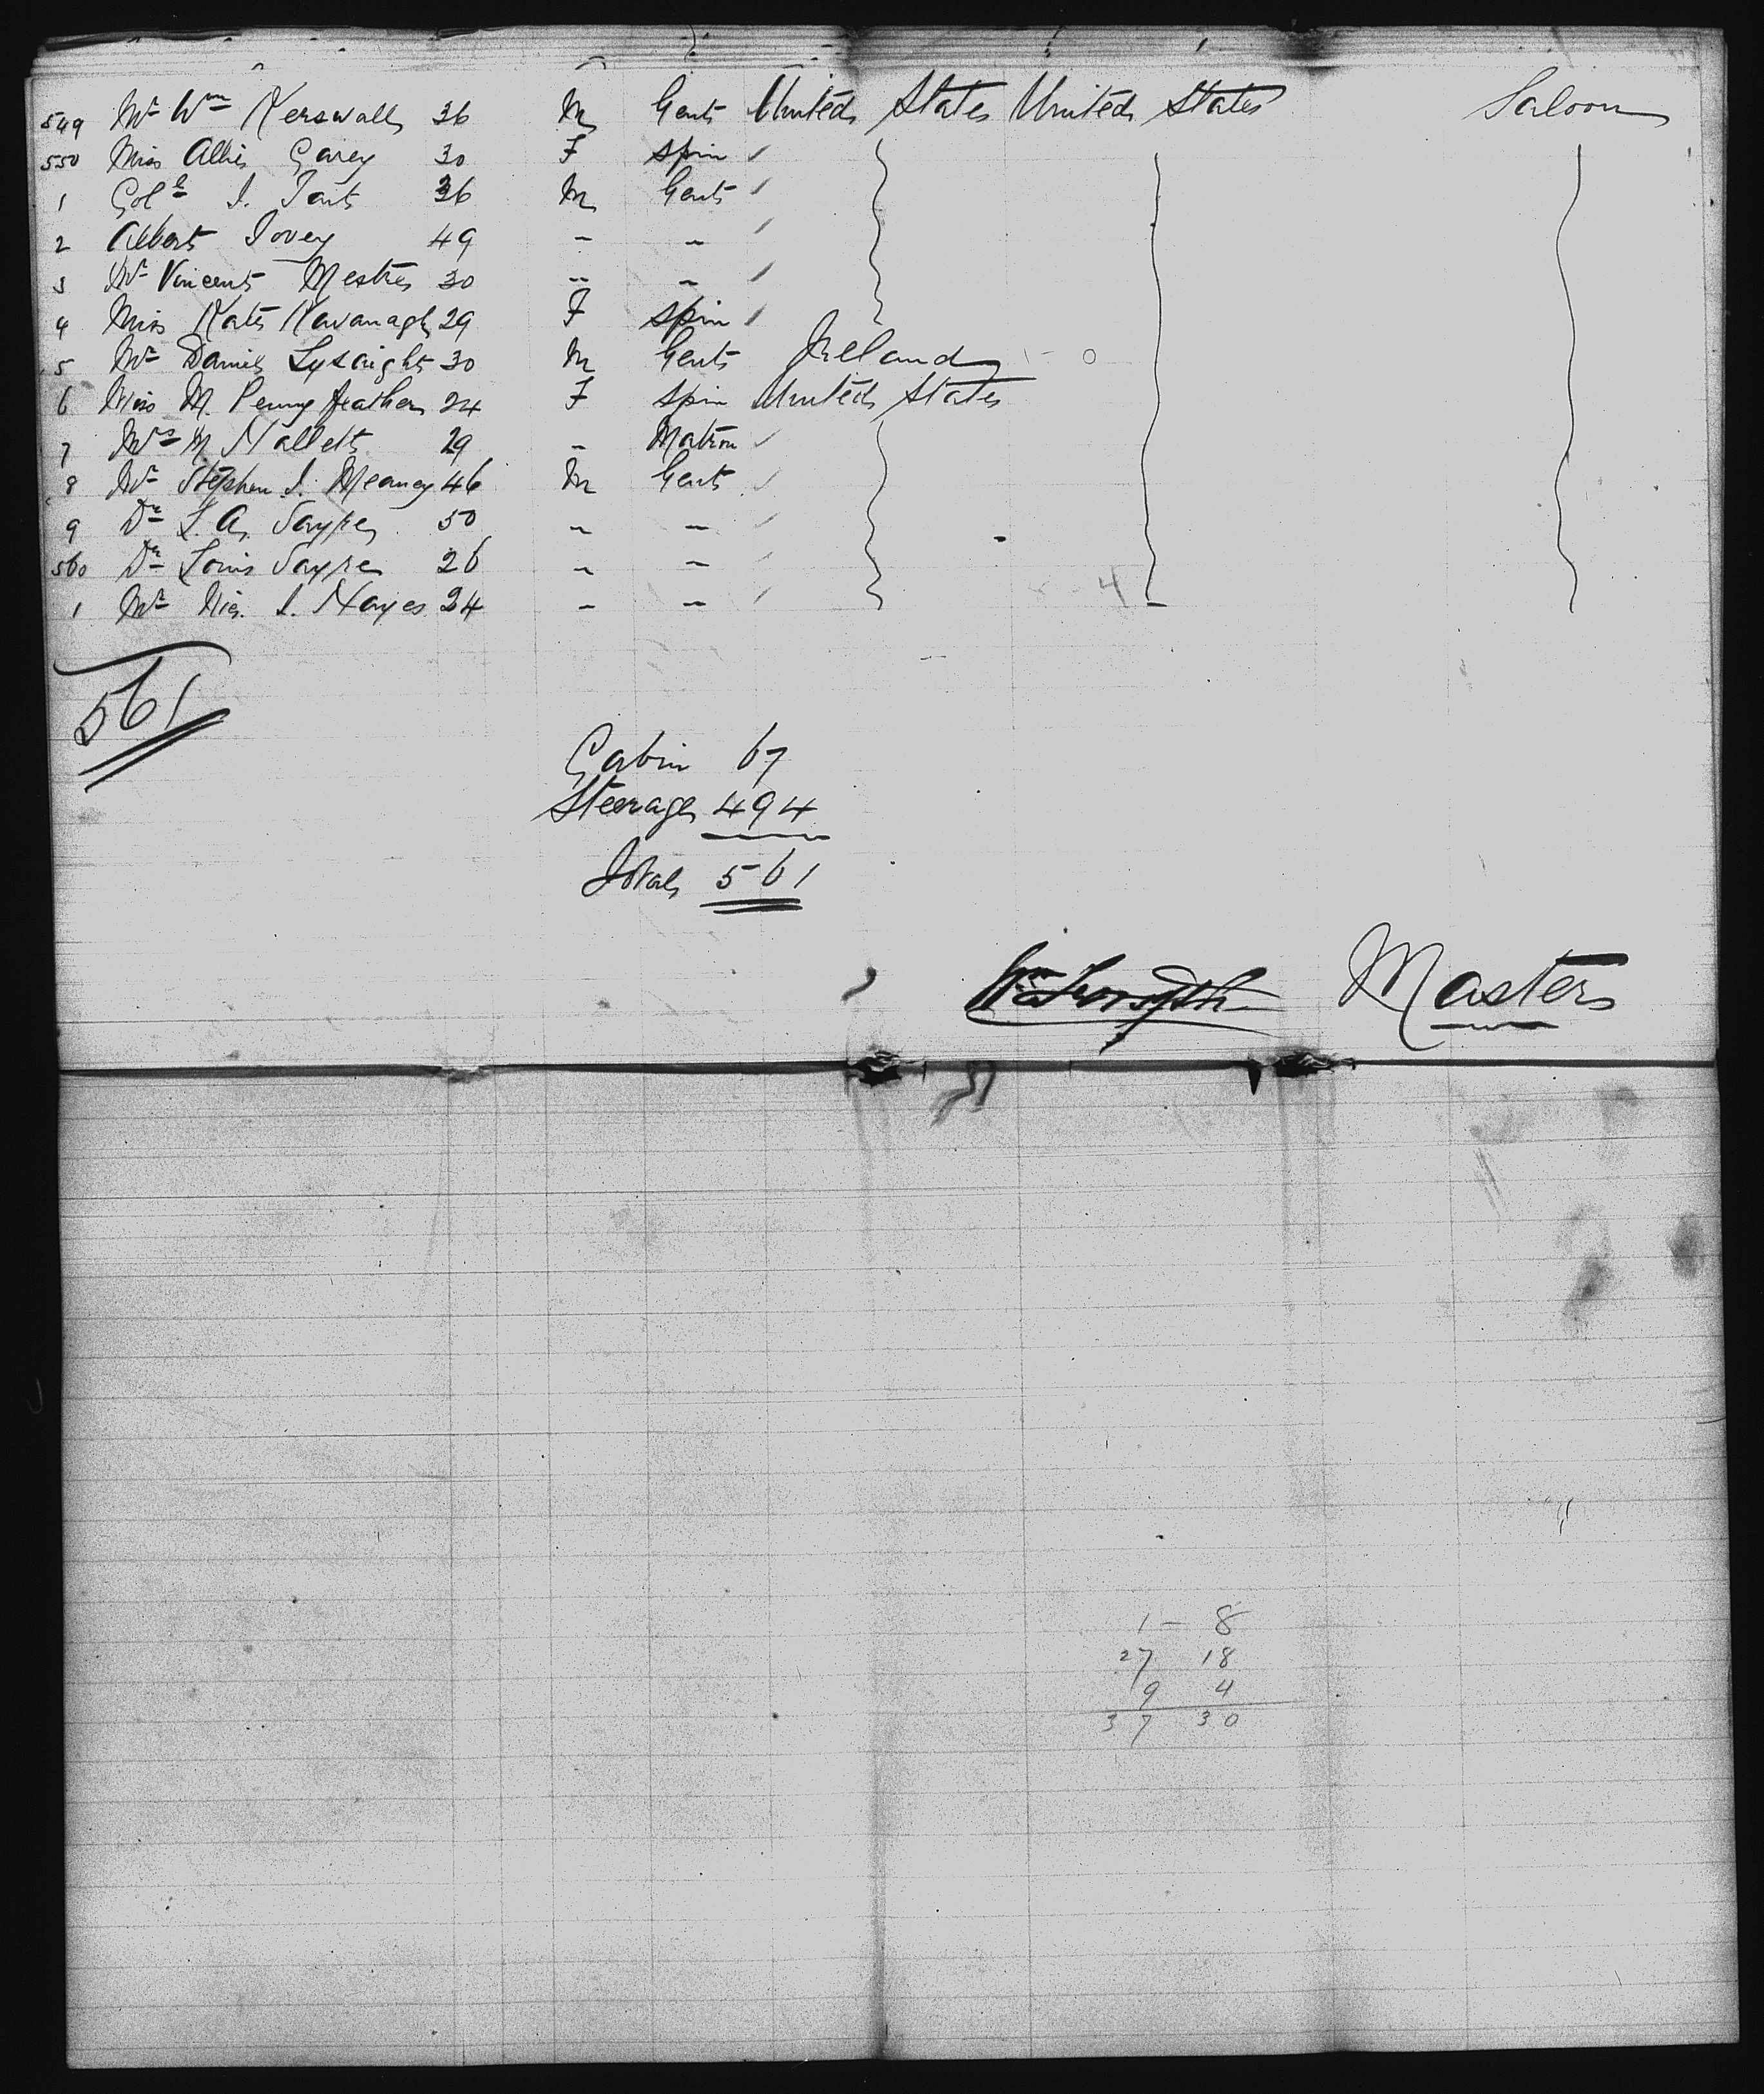 549 Mr Wm Kerswall 36 M Gent United States United States Saloon
550 Miss Allie Carey 30 F Spin "
1 Col. J. 36 M Gent "
2 Albert Jovey 49 - - "
3 Mr Vincent Mestres 30 - - "
4 Miss Kate Kavanagh 29 F Spin "
5 Mr Daniel Lysaight 30 M Gent Ireland - 0
6 Miss M. Pennyfeather 24 F Spin United States
7 Mrs M Hallett 29 - Matron "
8 Mr Stephen J. Meaney 46 M Gent "
9 Dr L. A. Sayre 50 - - "
560 Dr Louis Sayre 26 - - "
1 Mr J. Hayes 24 - - " 4
561
Cabin 67
Steerage 494
Total 561
Wm Forsyth Master
1 - 8
27 18
9 4
37 30